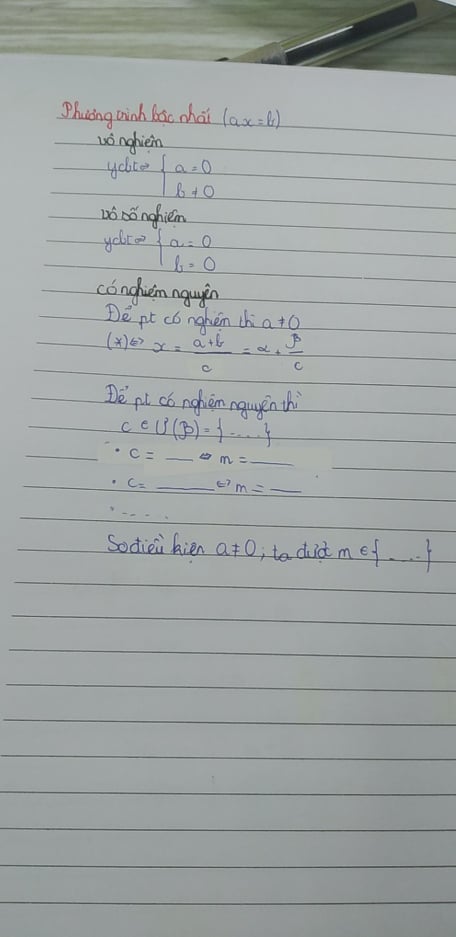 Phương trình bậc nhất (ax = b)
vô nghiệm
ycbt⇔ { a = 0
b ≠ 0
vô số nghiệm
ycbt⇔ { a = 0
b = 0
có nghiệm nguyên
Để pt có nghiệm thì a ≠ 0
(*)⇔ x = a+b / c = α + β / c
Để pt có nghiệm nguyên thì
c ∈ Ư(β) = { ..... }
• c = __ ⇔ m = ____
• c = ______ ⇔ m = ___
• .....
So điều kiện a ≠ 0 ; ta được m ∈ { ..... }